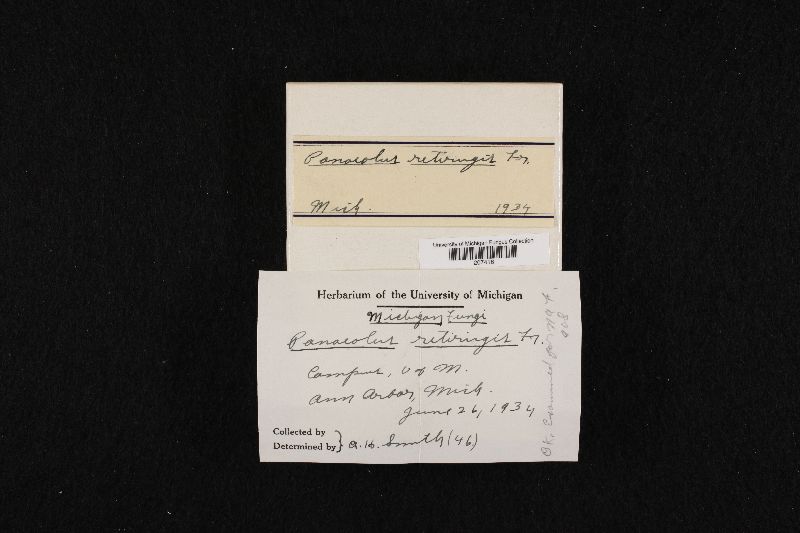 Panaeolus retirugis Fr.
Mich. 1934
University of Michigan Fungus Collection
Herbarium of the University of Michigan
Michigan Fungi
Panaeolus retirugis Fr.
Campus, U of M.
Ann Arbor, Mich.
June 26, 1934
Collected by
Determined by } A. H. Smith (46)
OK, Examined for